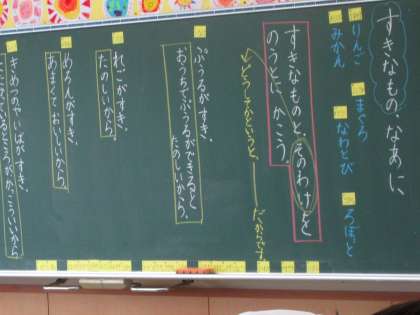 すきなもの、なあに。
りんご
みかん
まぐろ
なわとび
ろぼっと
すきなものと、そのわけを
のうとに、かこう。
どうしてかというと、
だからです。
ぷうるがすき。
おうちでぷうるができると
たのしいから。
れごがすき。
たのしいから。
めろんがすき。
あまくておいしいから。
きめつのやいばがすき。
たたかっているところが、かっこういいから